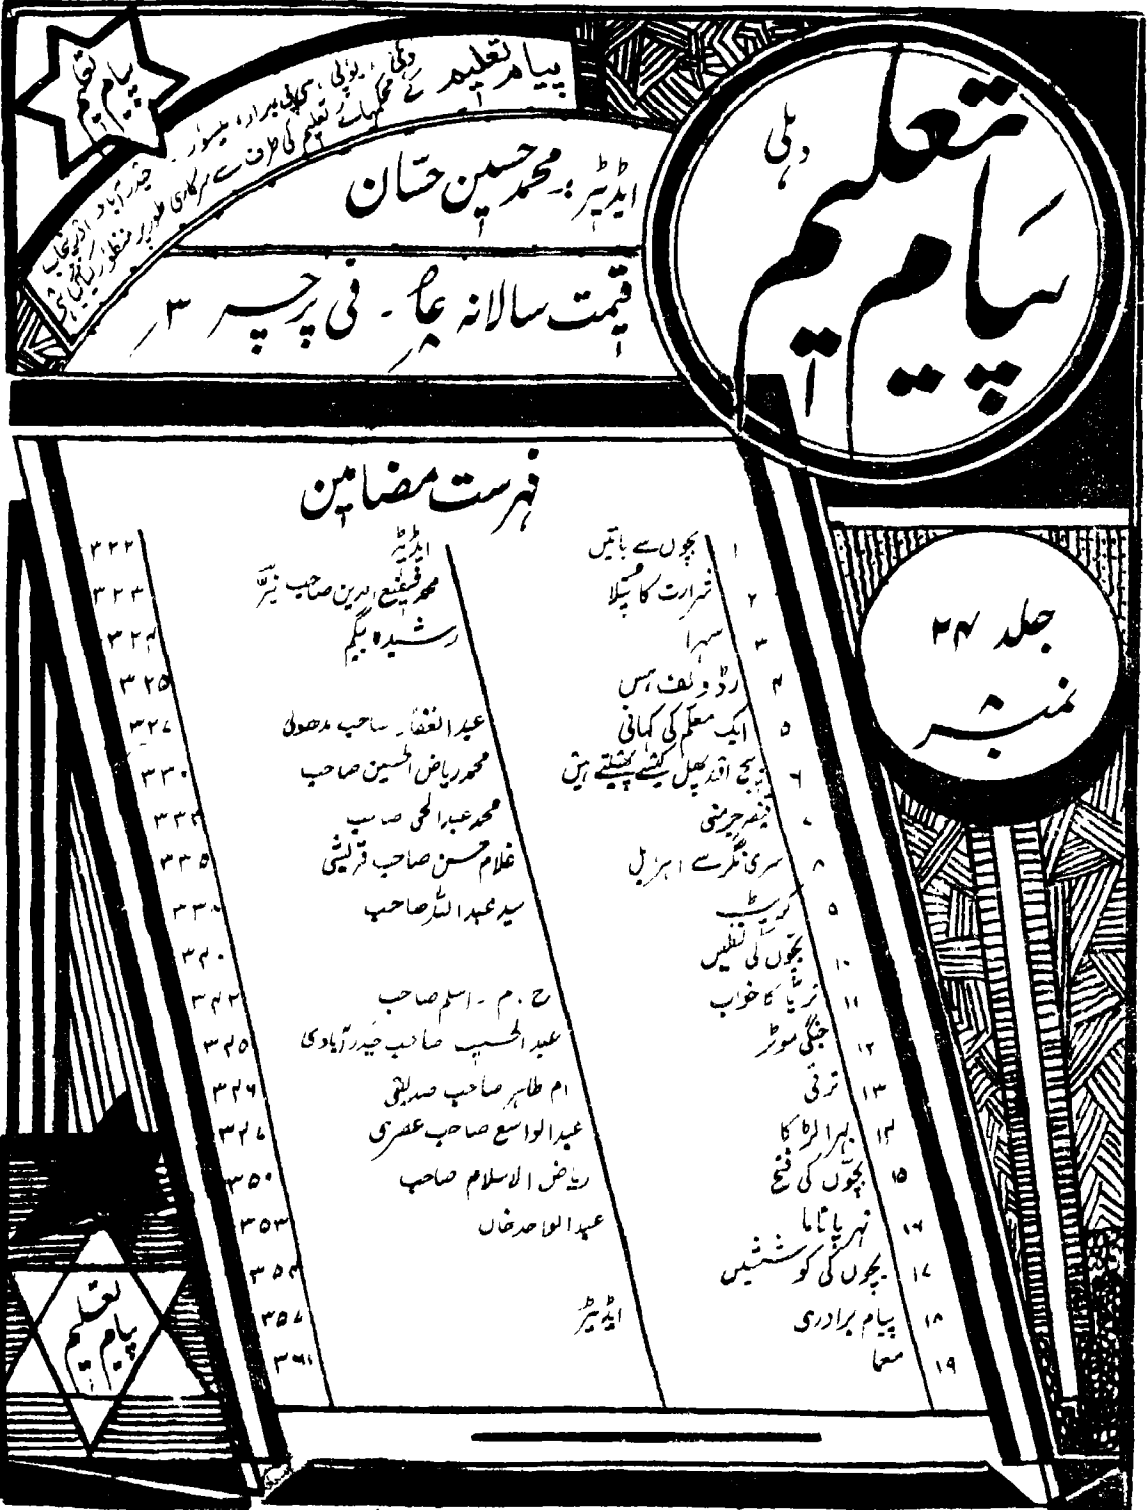 پیام تعلیم
پیام تعلیم دہلی، یوپی، سی پی برار، میسور، حیدرآباد اور پنجاب
کے محکمہائے تعلیم کی طرف سے سرکاری طور پر منظور کیا گیا ہے
پیام تعلیم
دہلی
ایڈیٹر :۔ محمد حسین حسّان
قیمت سالانہ ۔ فی پرچہ ۳؍
فہرست مضامین
جلد ۲۴
نمبر ۸
۱ بچوں سے باتیں ایڈیٹر ۳۲۲
۲ شرارت کا پتلا محمد شفیع الدین صاحب نیّر ۳۲۳
۳ سہرا رشیدہ بیگم ۳۲۴
۴ رڈولف ہس ۳۲۵
۵ ایک معلم کی کہانی عبدالغفار صاحب مدھولی ۳۲۷
۶ بیج اور پھل کیسے پھیلتے ہیں محمد ریاض الحسین صاحب ۳۳۰
۷ قیصر جرمنی محمد عبدالحی صاحب
۸ سری نگر سے اہربل غلام حسن صاحب قریشی ۳۳۵
۹ کریٹ سید عبداللہ صاحب
۱۰ بچّوں کی نظمیں ۳۴۰
۱۱ ثریّا کا خواب ح ۔ م ۔ اسلم صاحب ۳۴۲
۱۲ جنگی موٹر عبدالحسیب صاحب حیدرآبادی ۳۴۵
۱۳ ترقی ام طاہر صاحب صدیقی ۳۴۶
۱۴ بہرا لڑکا عبدالواسع صاحب عصری ۳۴۷
۱۵ بچّوں کی فتح ریاض الاسلام صاحب ۳۵۰
۱۶ نہر پاناما عبدالواحد خاں ۳۵۳
۱۷ بچوں کی کوششیں ۳۵۴
۱۸ پیام برادری ایڈیٹر ۳۵۷
۱۹ معما ۳۶۱
پیام تعلیم